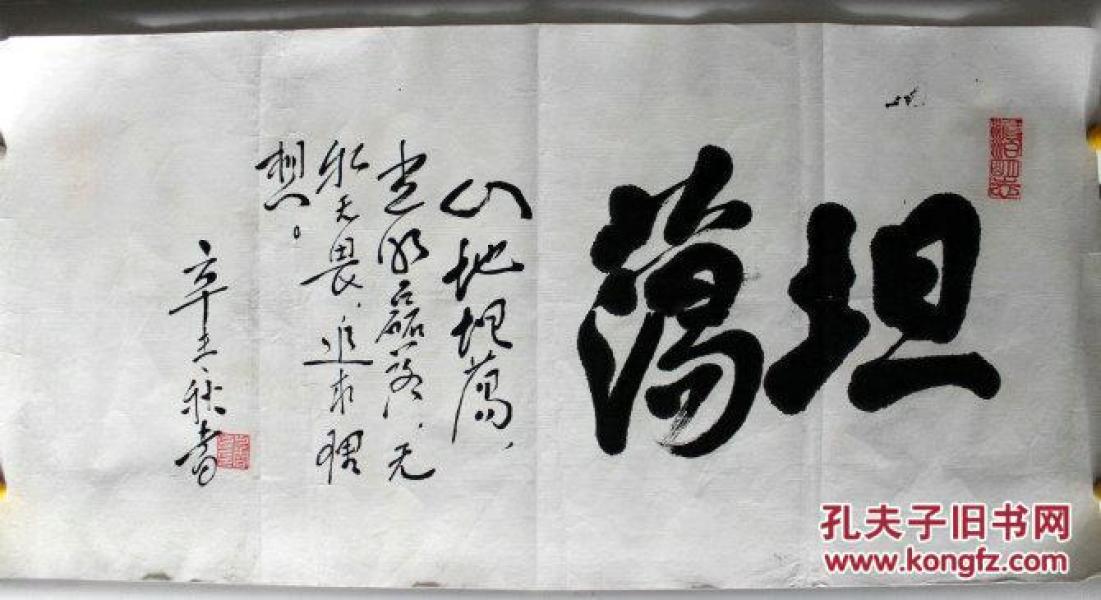 坦蕩
心地坦蕩、
光明磊落、无
私无畏、追求理
想。
秋書
孔夫子旧书网
www.kongfz.com